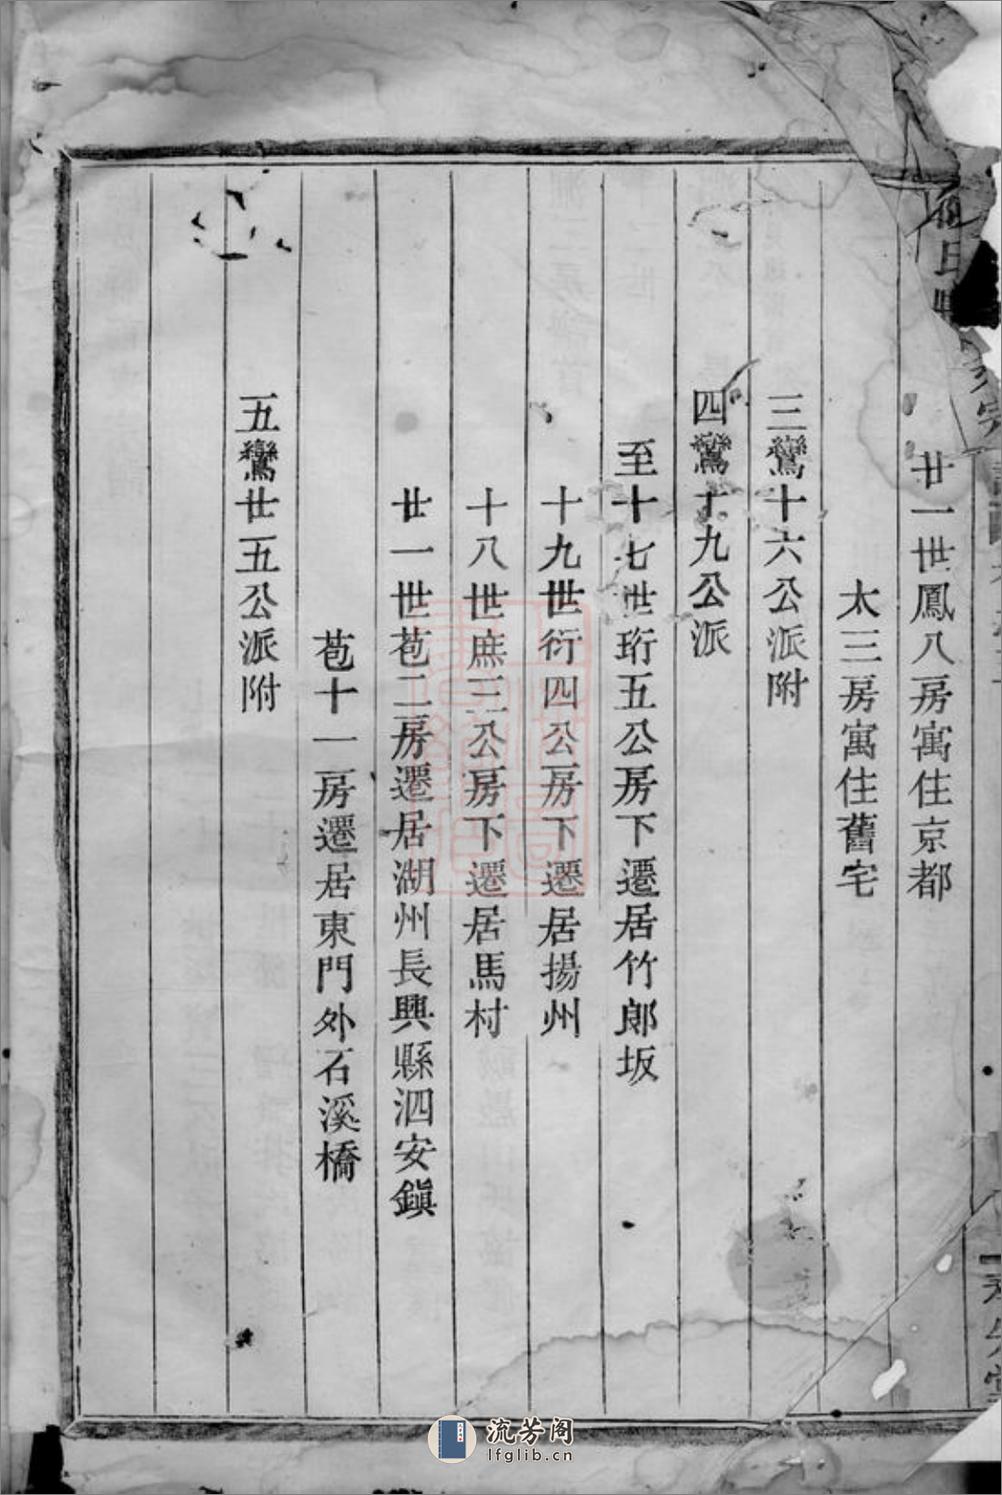 廿一世鳳八房寓住京都
太三房寓住舊宅
三鸞十六公派附
四鸞十九公派
至十七世珩五公房下遷居竹郎坂
十九世衍四公房下遷居揚州
十八世庶三公房下遷居馬村
廿一世苞二房遷居湖州長興縣泗安鎭
苞十一房遷居東門外石溪橋
五鸞廿五公派附
流芳阁
lfglib.cn